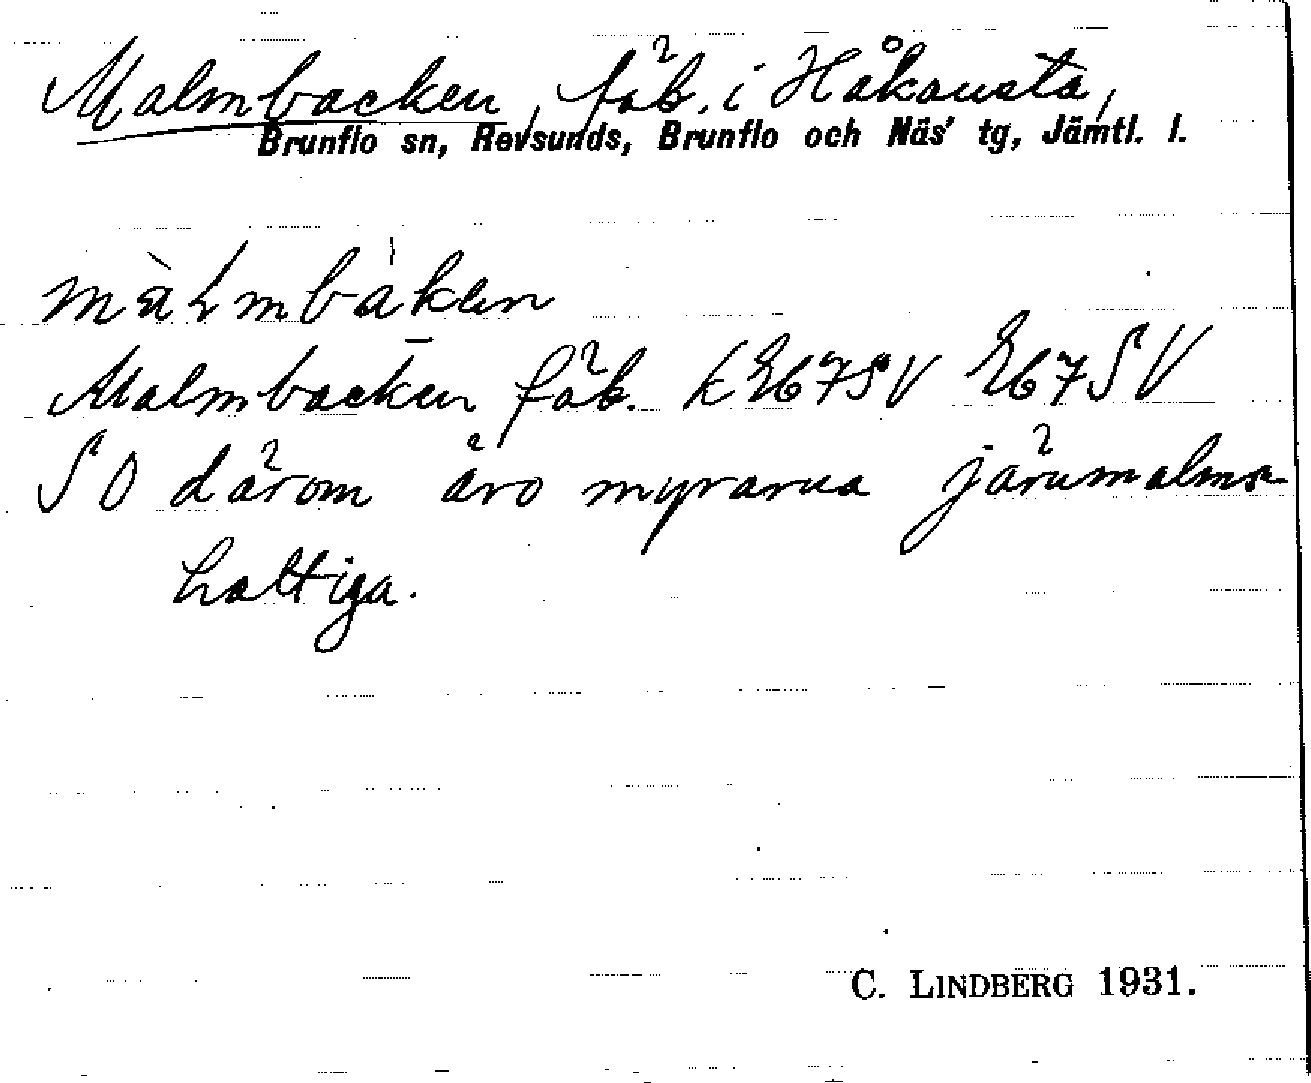 Malmbacken, fäb. i Håkansta,
Brunflo sn, Revsunds, Brunflo och Näs' tg, Jämtl. l.
màLmbàken
Malmbacken fäb. k E67SV E67SV
SO därom äro myrarna järnmalms-
haltiga.
C. LINDBERG 1931.